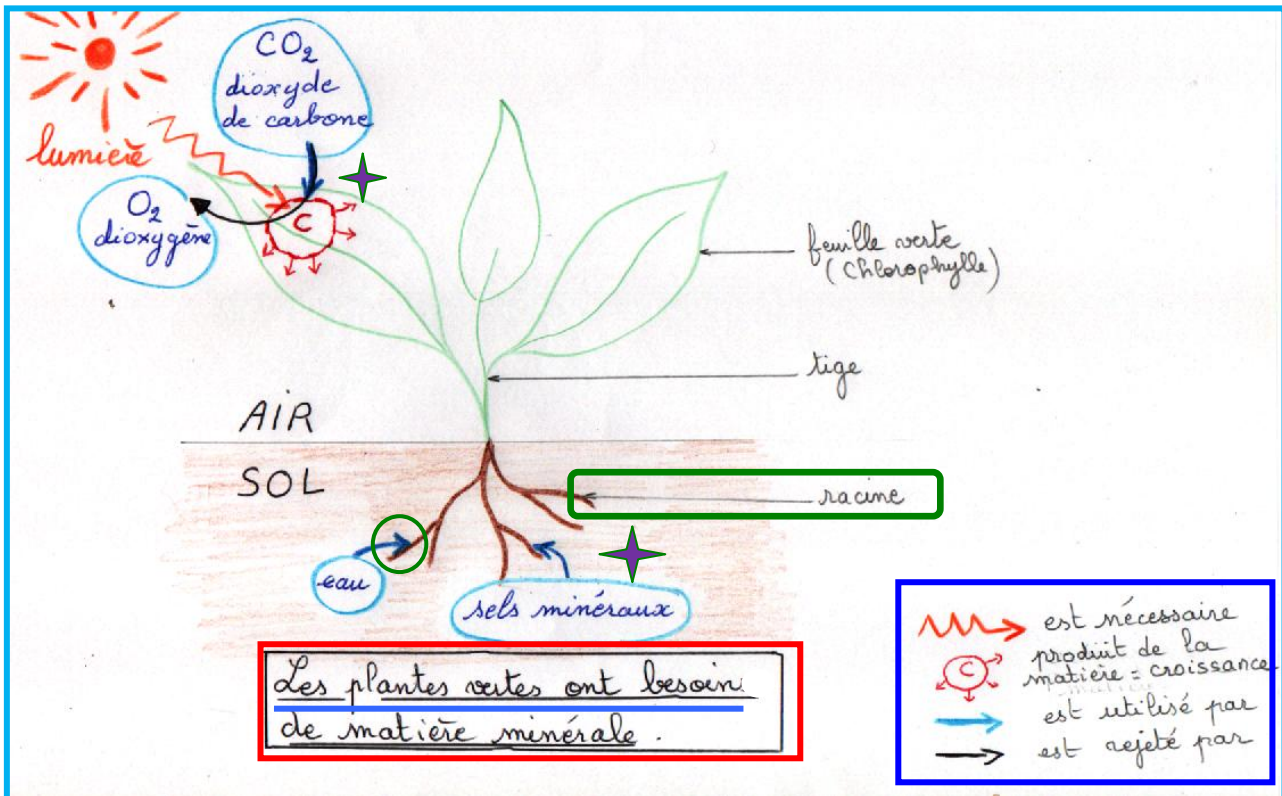 CO₂
dioxyde
de carbone
lumière
O₂
dioxygène
C
feuille verte
(Chlorophylle)
tige
AIR
SOL
racine
eau
sels minéraux
Les plantes vertes ont besoin
de matière minérale.
est nécessaire
C
produit de la
matière = croissance
est utilisé par
est rejeté par